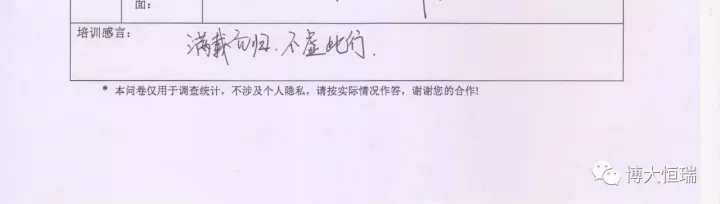 面：
培训感言：
满载而归、不虚此行.
* 本问卷仅用于调查统计，不涉及个人隐私，请按实际情况作答，谢谢您的合作!
博大恒瑞